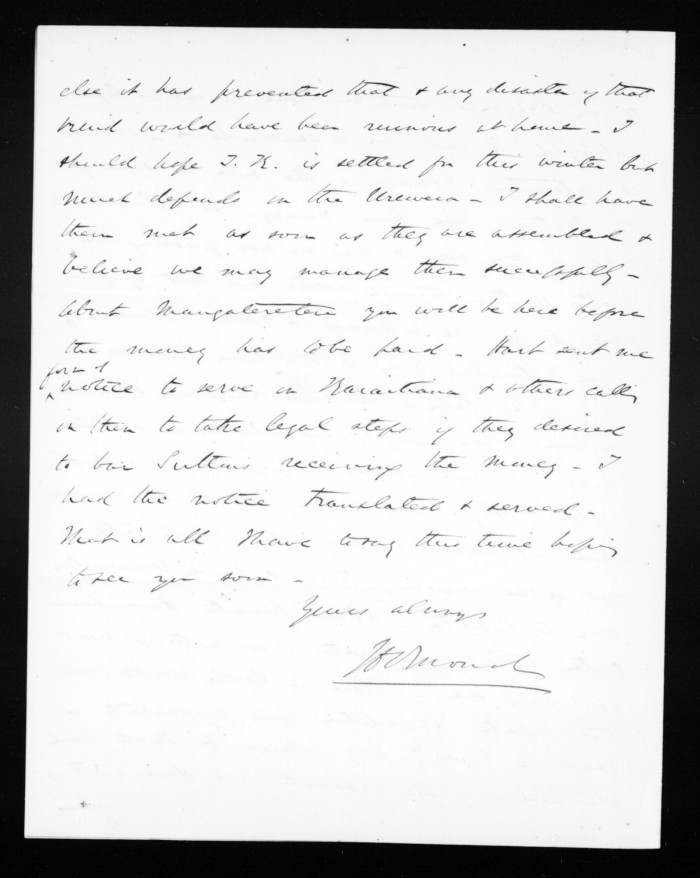 else it has prevented that & any disaster of that
kind would have been ruinous at home - I
should hope T.K. is settled for this winter but
much depends on the Urewera - I shall have
them met as soon as they are assembled &
believe we may manage them successfully -
about Mangateretere you will be here before
the money has to be paid - Hart sent me
form of
notice to serve on Karaitiana & others calling
on them to take legal steps if they desired
to bar Suttons receiving the money - I
had the notice translated & served -
That is all I have to say this time hoping
to see you soon -
Yours always
JD Ormond